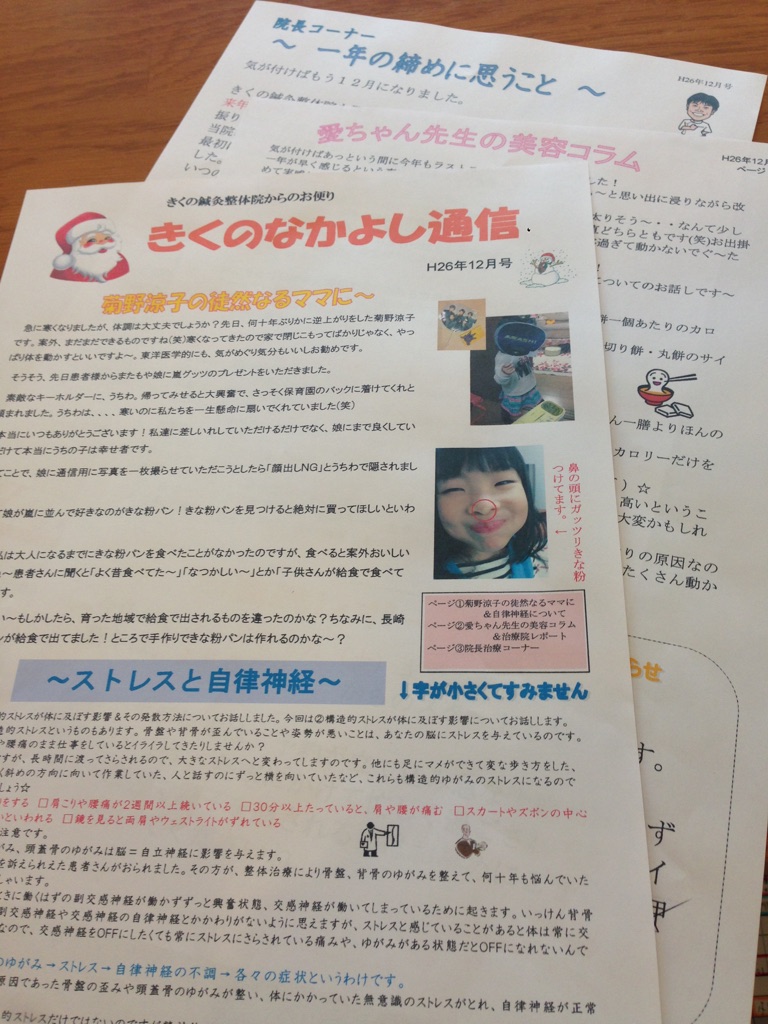 院長コーナー
～ 一年の締めに思うこと ～
H26年12月号
気が付けばもう１２月になりました。
きくの鍼灸整体院
来年
振り
当院
最初
した。
いつ
愛ちゃん先生の美容コラム
H26年12月
ページ
気が付けばあっという間に今年もラスト
一年が早く感じるという
した！
～と思い出に浸りながら改
太りそう～・・なんて少し
直どちらともです(笑)お出掛
過ぎて動かないでぐ～た
！
についてのお話しです～
餅一個あたりのカロ
切り餅・丸餅のサイ
ん一膳よりほんの
カロリーだけを
）☆
高いというこ
大変かもしれ
りの原因なの
たくさん動か
らせ
す。
ず
きくの鍼灸整体院からのお便り
きくのなかよし通信
H26年12月号
菊野涼子の徒然なるママに～
急に寒くなりましたが、体調は大丈夫でしょうか？先日、何十年ぶりかに逆上がりをした菊野涼子
です。案外、まだまだできるものですね(笑)寒くなってきたので家で閉じこもってばかりじゃなく、やっ
ぱり体を動かすといいですよ～。東洋医学的にも、気がめぐり気分もいいしお勧めです。
そうそう、先日患者様からまたもや娘に嵐グッツのプレゼントをいただきました。
素敵なキーホルダーに、うちわ。帰ってみせると大興奮で、さっそく保育園のバックに着けてくれと
頼まれました。うちわは、、、、寒いのに私たちを一生懸命に扇いでくれていました(笑)
本当にいつもありがとうございます！私達に差しいれしていただけるだけでなく、娘にまで良くしてい
だけて本当にうちの子は幸せ者です。
てことで、娘に通信用に写真を一枚撮らせていただこうとしたら「顔出しNG」とうちわで隠されまし
て娘が嵐に並んで好きなのがきな粉パン！きな粉パンを見つけると絶対に買ってほしいといわ
私は大人になるまでにきな粉パンを食べたことがなかったのですが、食べると案外おいしい
～患者さんに聞くと「よく昔食べてた～」「なつかしい～」とか「子供さんが給食で食べて
す。
い～もしかしたら、育った地域で給食で出されるものも違ったのかな？ちなみに、長崎
ンが給食で出てました！ところで手作りできな粉パンは作れるのかな～？
ARASHI
鼻の頭にガッツリきな粉
つけてます。←
ページ①菊野涼子の徒然なるママに
＆自律神経について
ページ②愛ちゃん先生の美容コラム
＆治療院レポート
ページ③院長治療コーナー
～ストレスと自律神経～
↓字が小さくてすみません
的ストレスが体に及ぼす影響＆その発散方法についてお話ししました。今回は②構造的ストレスが体に及ぼす影響についてお話しします。
造的ストレスというものもあります。骨盤や背骨が歪んでいることや姿勢が悪いことは、あなたの脳にストレスを与えているのです。
や腰痛のまま仕事をしているとイライラしてきたりしませんか？
すが、長時間に渡ってさらされるので、大きなストレスへと変わってしますのです。他にも足にマメができて変な歩き方をした、
く斜めの方向に向いて作業していた、人と話すのにずっと横を向いていたなど、これらも構造的ゆがみのストレスになるので
しょう☆
をする □肩こりや腰痛が2週間以上続いている □30分以上たっていると、肩や腰が痛む □スカートやズボンの中心
いといわれる □鏡を見ると両肩やウェストライトがずれている
注意です。
がみ、頭蓋骨のゆがみは脳＝自立神経に影響を与えます。
を訴えられえた患者さんがおられました。その方が、整体治療により骨盤、背骨のゆがみを整えて、何十年も悩んでいた
しゃいます。
ときに働くはずの副交感神経が働かずずっと興奮状態、交感神経が働いてしまっているために起きます。いっけん背骨
副交感神経や交感神経の自律神経とかかわりがないように思えますが、ストレスと感じていることがあると体は常に交
なので、交感神経をOFFにしたくても常にストレスにさらされている痛みや、ゆがみがある状態だとOFFになれないんで
のゆがみ→ストレス→自律神経の不調→各々の症状というわけです。
原因であった骨盤の歪みや頭蓋骨のゆがみが整い、体にかかっていた無意識のストレスがとれ、自律神経が正常
的ストレスだけではないのですが